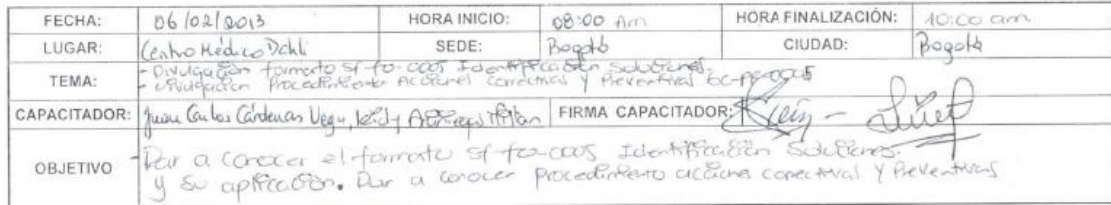 FECHA: 06/02/2013 HORA INICIO: 08:00 Am HORA FINALIZACIÓN: 10:00 am
LUGAR: Centro Médico Dahli SEDE: Bogotá CIUDAD: Bogotá
TEMA: - Divulgación formato sf-fo-0005 Identificación Soluciones.
- Divulgación Procedimiento Acciones Correctivas y Preventivas GC-pe-0005
CAPACITADOR: Juan Carlos Cárdenas Vega, FIRMA CAPACITADOR:
OBJETIVO - Dar a conocer el formato sf-fo-0005 Identificación Soluciones.
y su aplicación. Dar a conocer procedimiento acciones correctivas y Preventivas